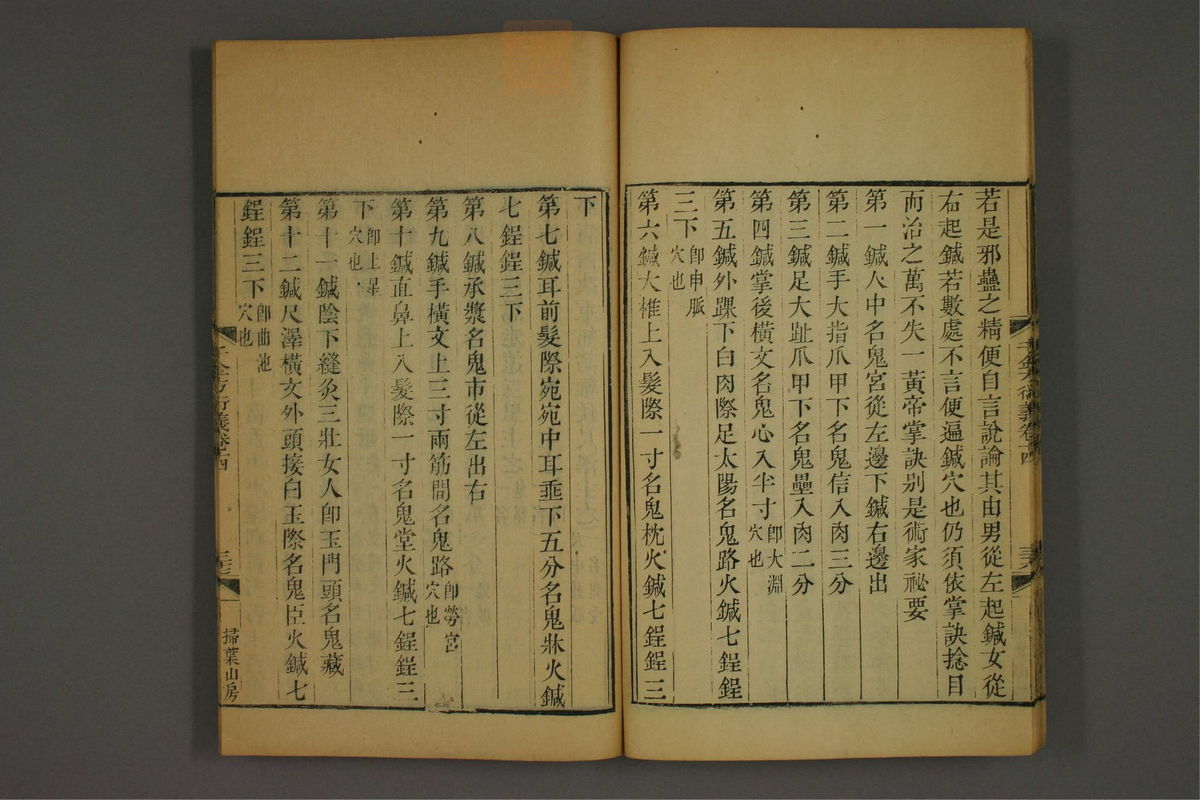 若是邪蠱之精便自言說論其由男從左起鍼女從
右起鍼若數處不言便遍鍼穴也仍須依掌訣捻目
而治之萬不失一黃帝掌訣别是術家祕要
第一鍼人中名鬼宮從左邊下鍼右邊出
第二鍼手大指爪甲下名鬼信入肉三分
第三鍼足大趾爪甲下名鬼壘入肉二分
第四鍼掌後橫文名鬼心入半寸卽大淵穴也
第五鍼外踝下白肉際足太陽名鬼路火鍼七鋥鋥
三下卽申脈穴也
第六鍼大椎上入髮際一寸名鬼枕火鍼七鋥鋥三
下
第七鍼耳前髮際宛宛中耳垂下五分名鬼牀火鍼
七鋥鋥三下
第八鍼承漿名鬼市從左出右
第九鍼手橫文上三寸兩筋間名鬼路卽勞宮穴也
第十鍼直鼻上入髮際一寸名鬼堂火鍼七鋥鋥三
下卽上星穴也
第十一鍼陰下縫灸三壯女人卽玉門頭名鬼藏
第十二鍼尺澤橫文外頭接白玉際名鬼臣火鍼七
鋥鋥三下卽曲池穴也
千金方衍義卷十四
掃葉山房